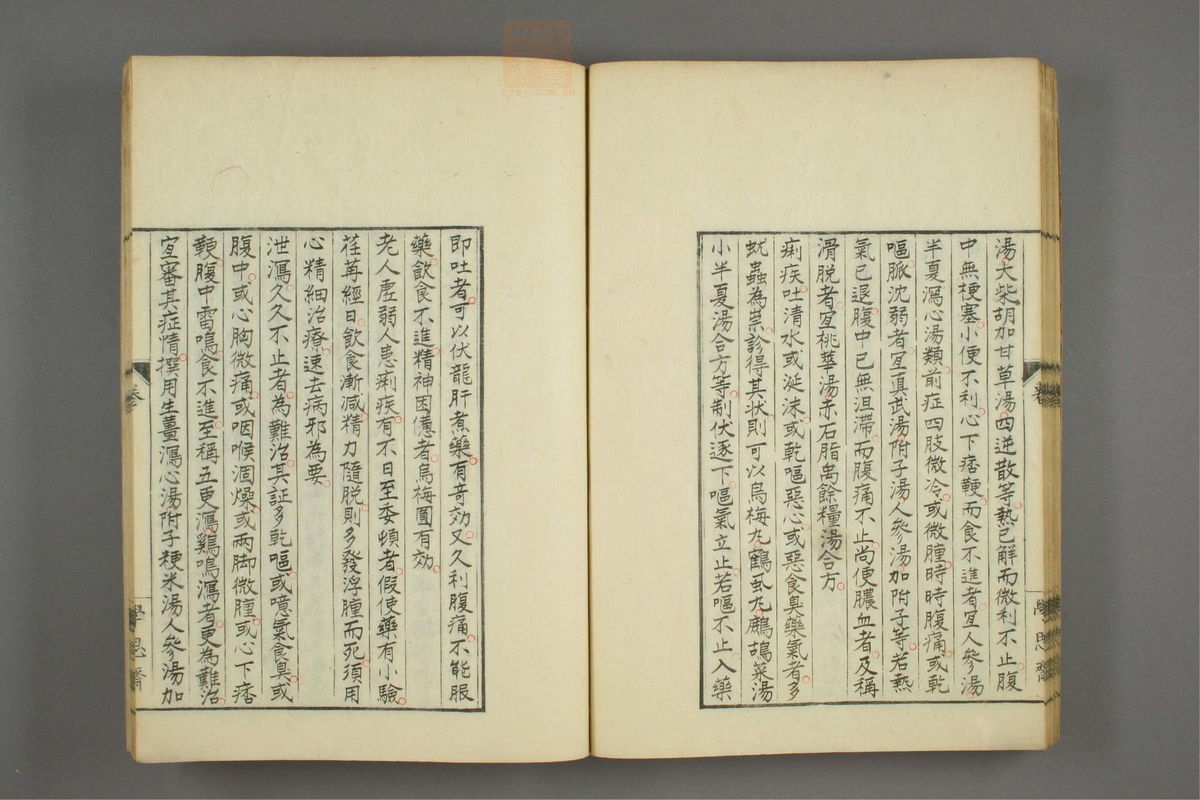 湯大柴胡加甘草湯四逆散等熱已解而微利不止腹
中無梗塞小便不利心下痞鞕而食不進者宜人參湯
半夏瀉心湯類前症四肢微冷或微腫時時腹痛或乾
嘔脈沈弱者宜真武湯附子湯人參湯加附子等若熱
氣已退腹中已無沮滯而腹痛不止尚便膿血者及稱
滑脱者宜桃華湯赤石脂禹餘糧湯合方
痢疾吐清水或涎沫或乾嘔惡心或惡食臭藥氣者多
蚘蟲為祟診得其狀則可以烏梅丸鶴虱丸鷓鴣菜湯
小半夏湯合方等制伏逐下嘔氣立止若嘔不止入藥
即吐者可以伏龍肝煮藥有奇効又久利腹痛不能服
藥飲食不進精神困憊者烏梅圓有効
老人虛弱人患痢疾有不日至委頓者假使藥有小驗
荏苒經日飲食漸減精力隨脱則多發浮腫而死須用
心精細治療速去病邪為要
泄瀉久久不止者為難治其証多乾嘔或噫氣食臭或
腹中或心胸微痛或咽喉涸燥或兩脚微腫或心下痞
鞕腹中雷鳴食不進至稱五更瀉鷄鳴瀉者更為難治
宜審其症情撰用生薑瀉心湯附子粳米湯人參湯加
卷
學思齋